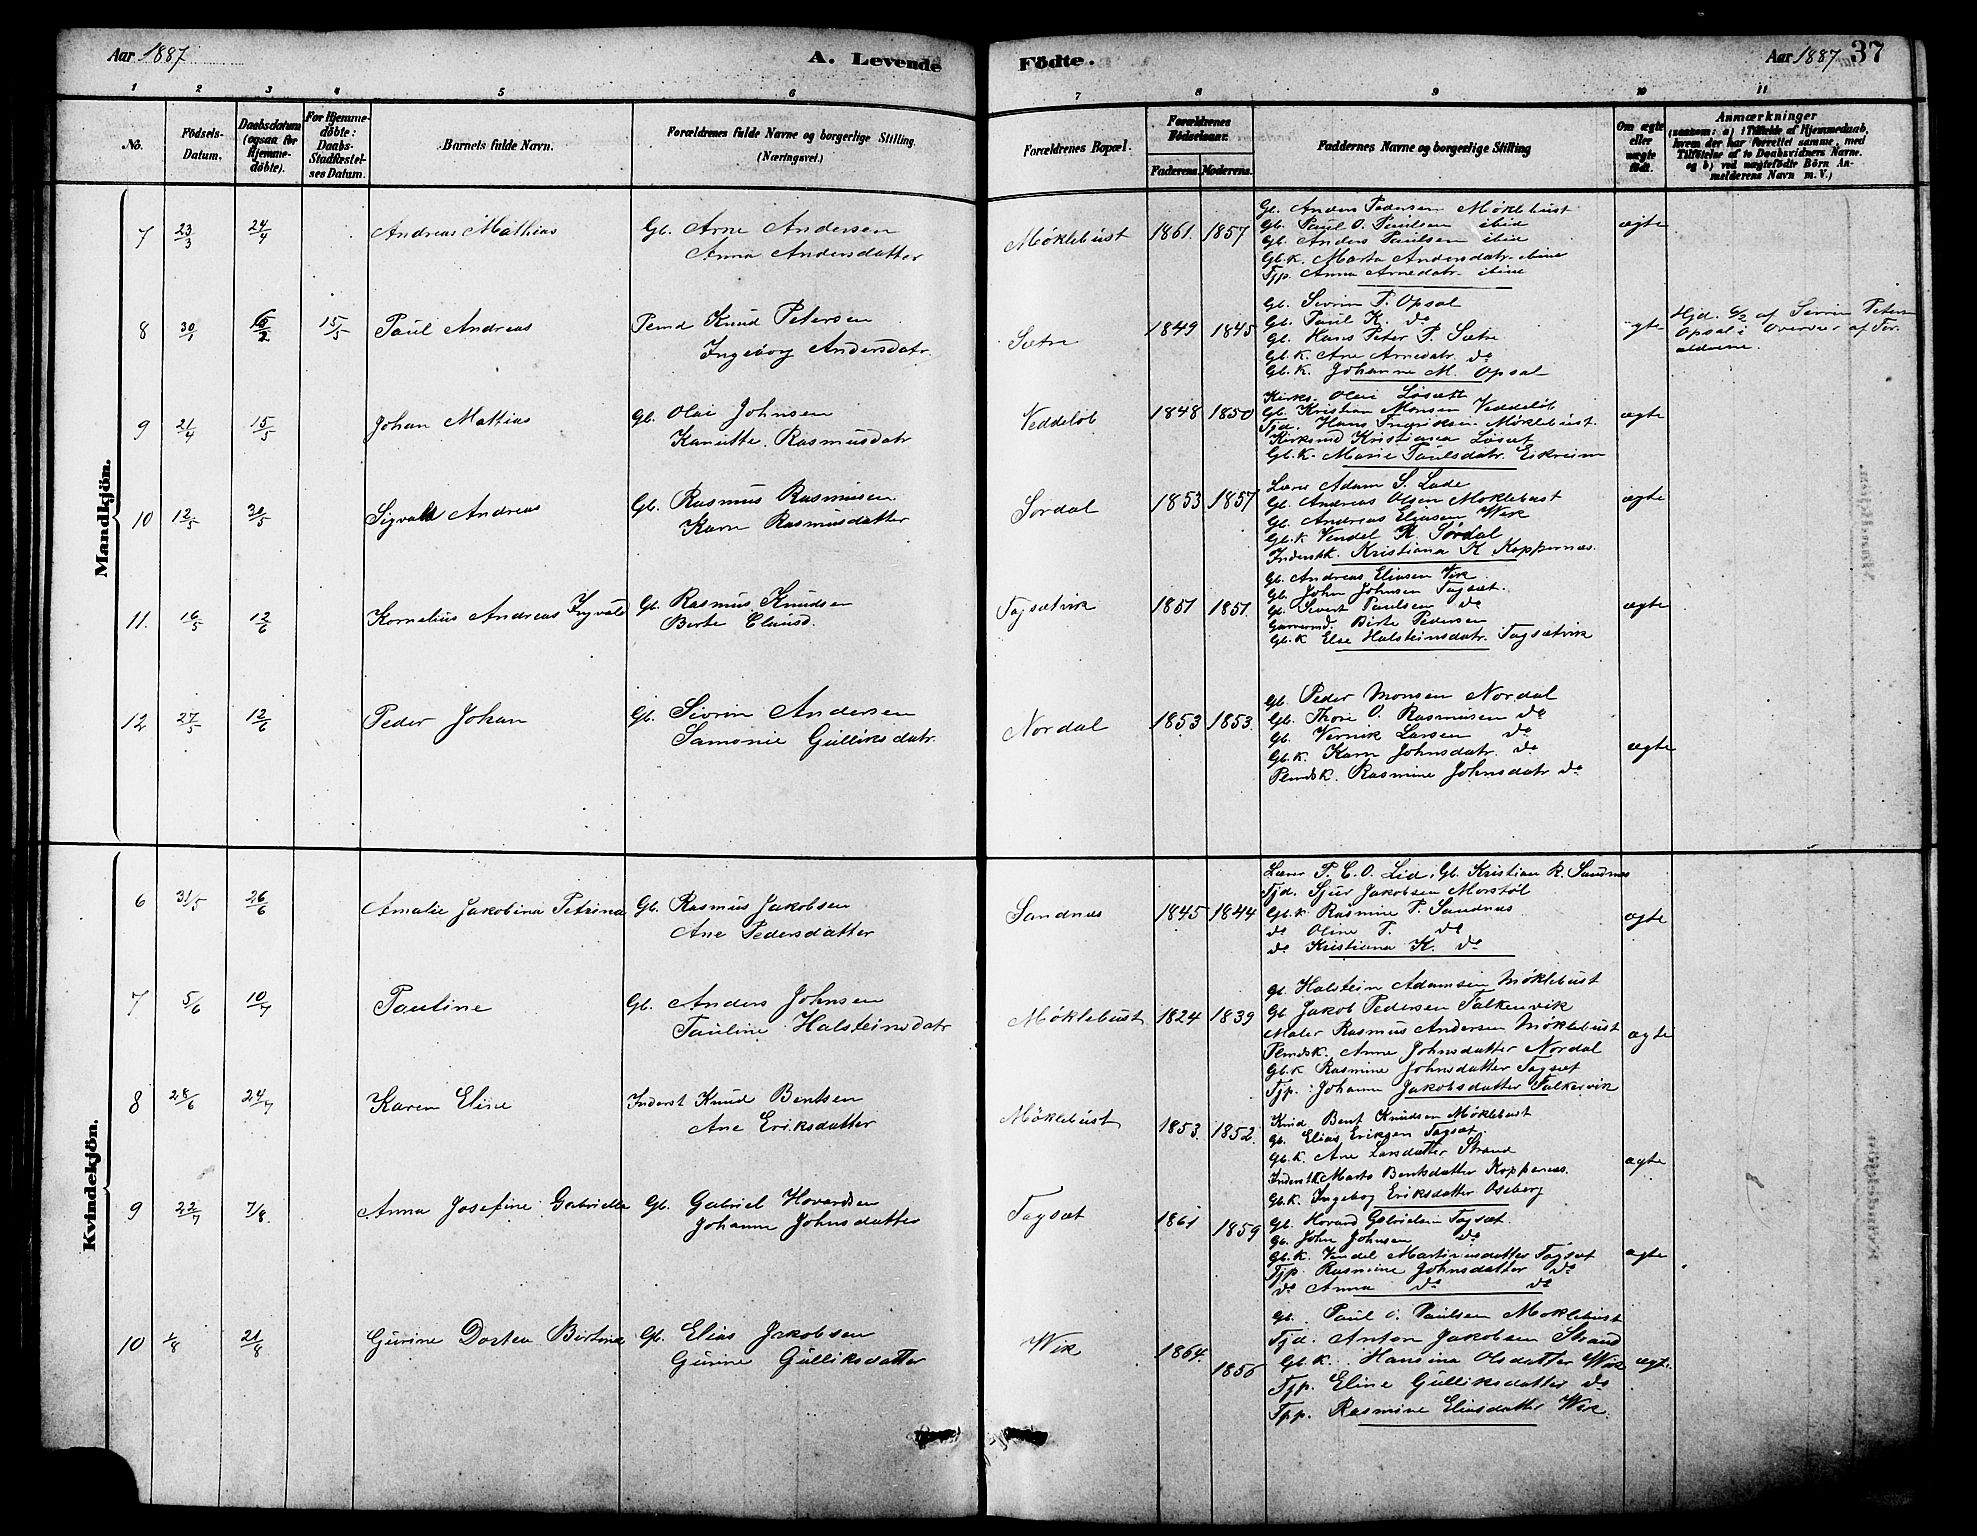 Aar 1887
A. Levende Födte.
Aar 1887
37
1 2 3 4 5 6 7 8 9 10 11
No.
Födsels-Datum.
Daabsdatum (ogsaa for Hjemme-döbte).
For Hjemme-döbte: Daabs-Stadfæstel-ses Datum.
Barnets fulde Navn.
Forældrenes fulde Navne og borgerlige Stilling. (Næringsvei.)
Forældrenes Bopæl.
Forældrenes Födselsaar.
Faderens. Moderens.
Faddernes Navne og borgerlige Stilling
Om ægte eller uægte födt.
Anmærkninger
(saasom: a) i Tilfælde af Hjemmedaab, hvem der har forrettet samme, med Tilföielse af to Daabsvidners Navne. og b) ved uægtefödte Börn An-melderens Navn m. V.)
Mandkjön.
7 23/3 24/4 Andreas Mathias
Gb. Arne Andersen
Anna Andersdatter
Møklebust 1861. 1857
Gb. Anders Pedersen Møklebust
Gb. Paul O. Paulsen ibid
Gb. Anders Paulsen ibid
Gb.k. Marta Andersdatr. ibid
Tjp. Anna Arnedatr. ibid
ægte
8 30/1 15/5 Paul Andreas
Pemd Knud Petersen
Ingeborg Andersdatr.
Sætre 1849 1845
Gb. Sevrin P. Opsal
Gb. Paul K. do
Gb. Hans Peter P. Sætre
Gb.k. Ane Arnedatr. do
Gb.k. Johanne M. Opsal
ægte
Hjd. af Sevrin Peters
Opsal i Overvær af For
ældrene.
9 21/4 15/5 Johan Mattias
Gb. Olai Johnsen
Kanutte Rasmusdatr
Veddeløb 1848 1850
Kirks. Olai Løsætt
Gb. Kristian Monsen Veddeløb
Tjd. Hans Møklebust.
Kristianea Løsæt
Gb.k. Marie Paulsdatr. Eikreim
ægte
10 12/5 30/5 Sigvald Andreas
Gb. Rasmus Rasmusen
Karn Rasmusdatter
Sørdal 1853 1857
Lærer Adam S. Lade
Gb. Andreas Olsen Møklebust
Gb. Andreas Eliasen Wik
Gb.k Vendel R. Sørdal
Inderstk. Kristiana K Koppernæs.
ægte
11. 16/5 12/6 Kornelius Andreas Ingvald
Gb. Rasmus Knudsen
Berte Elausd.
Tagsætvik 1851 1851.
Gb. Andreas Eliasen Wik
Gb. John Johnsen Tagsæt.
Gb. Sivert Paulsen do
Birte Pedersen
Gb.k Else Halsteinsdatr. Tagsætvik
ægte
12 27/5 12/6 Peder Johan
Gb. Sivrin Andersen
Samonie Gulliksdatr.
Nordal 1853 1853.
Gb. Peder Monsen Nordal
Gb. Thore O. Rasmusen do
Gb. Vernik Larsen do
Gb.k. Karn Johnsdatr. do
Pemdsk. Rasmine Johnsdatr do
ægte
Kvindekjön.
6 31/5 26/6 Amalie Jakobina Petrina
Gb. Rasmus Jakobsen
Ane Pedersdatter
Sandnæs 1845 1844
Lærer P. E. O. Lid, Gb. Kristian R. Sandnæs
Tjd. Sjur Jakobsen Morstøl
Gb.k Rasmine P. Sandnæs
do Oline P. do
do Kristiana K. do
ægte
7 5/6 10/7 Pauline
Gb. Anders Johnsen
Pauline Halsteinsdatr
Møklebust 1824 1839
Gb. Halstein Adamsen Møklebust
Gb Jakob Pedersen Falkenvik
Maler Rasmus Andersen Møklebust
Pemdsk. Anne Johnsdatter Nordal
Gb.k Rasmine Johnsdatter Tagsæt
Tjp. Johanne Jakobsdatter Falkevik
ægte
8 28/6 24/7 Karen Elise
Inderst Knud Bentsen
Ane Eriksdatter
Møklebust 1853. 1852.
Bent Knudsen Møklebust
Gb. Elias Eriksen Tagsæt.
Gb.k. Ane Larsdatter Strand
Inderstk. Marto Bentsdatter Koppernæs.
Gb.k. Ingebog Eriksdatter Oseberg
ægte
9 22/7 7/8. Anna Josefine Gabrielle
Gb. Gabriel Hovardsen
Johanne Johnsdatter
Tagsæt 1861 1859
Gb. Hovard Gabrielsen Tagsæt.
Gb. John Johnsen do
Gb.k. Vendel Martinusdatter Tagsæt
Tjp. Rasmine Johnsdatter do
do Anna do do
ægte
10 1/8 21/8 Gurine Dortea Bertine
Gb. Elias Jakobsen
Gurine Gulliksdatter
Wik 1864. 1856
Gb. Paul O. Paulsen Moklebust
Tjd. Anton Jakobsen Strand
Gb.k. Hansina Olsdatter Wik
Tjp. Eline Gulliksdatter do
Tjp. Rasmine Eliasdatter Wik.
ægte